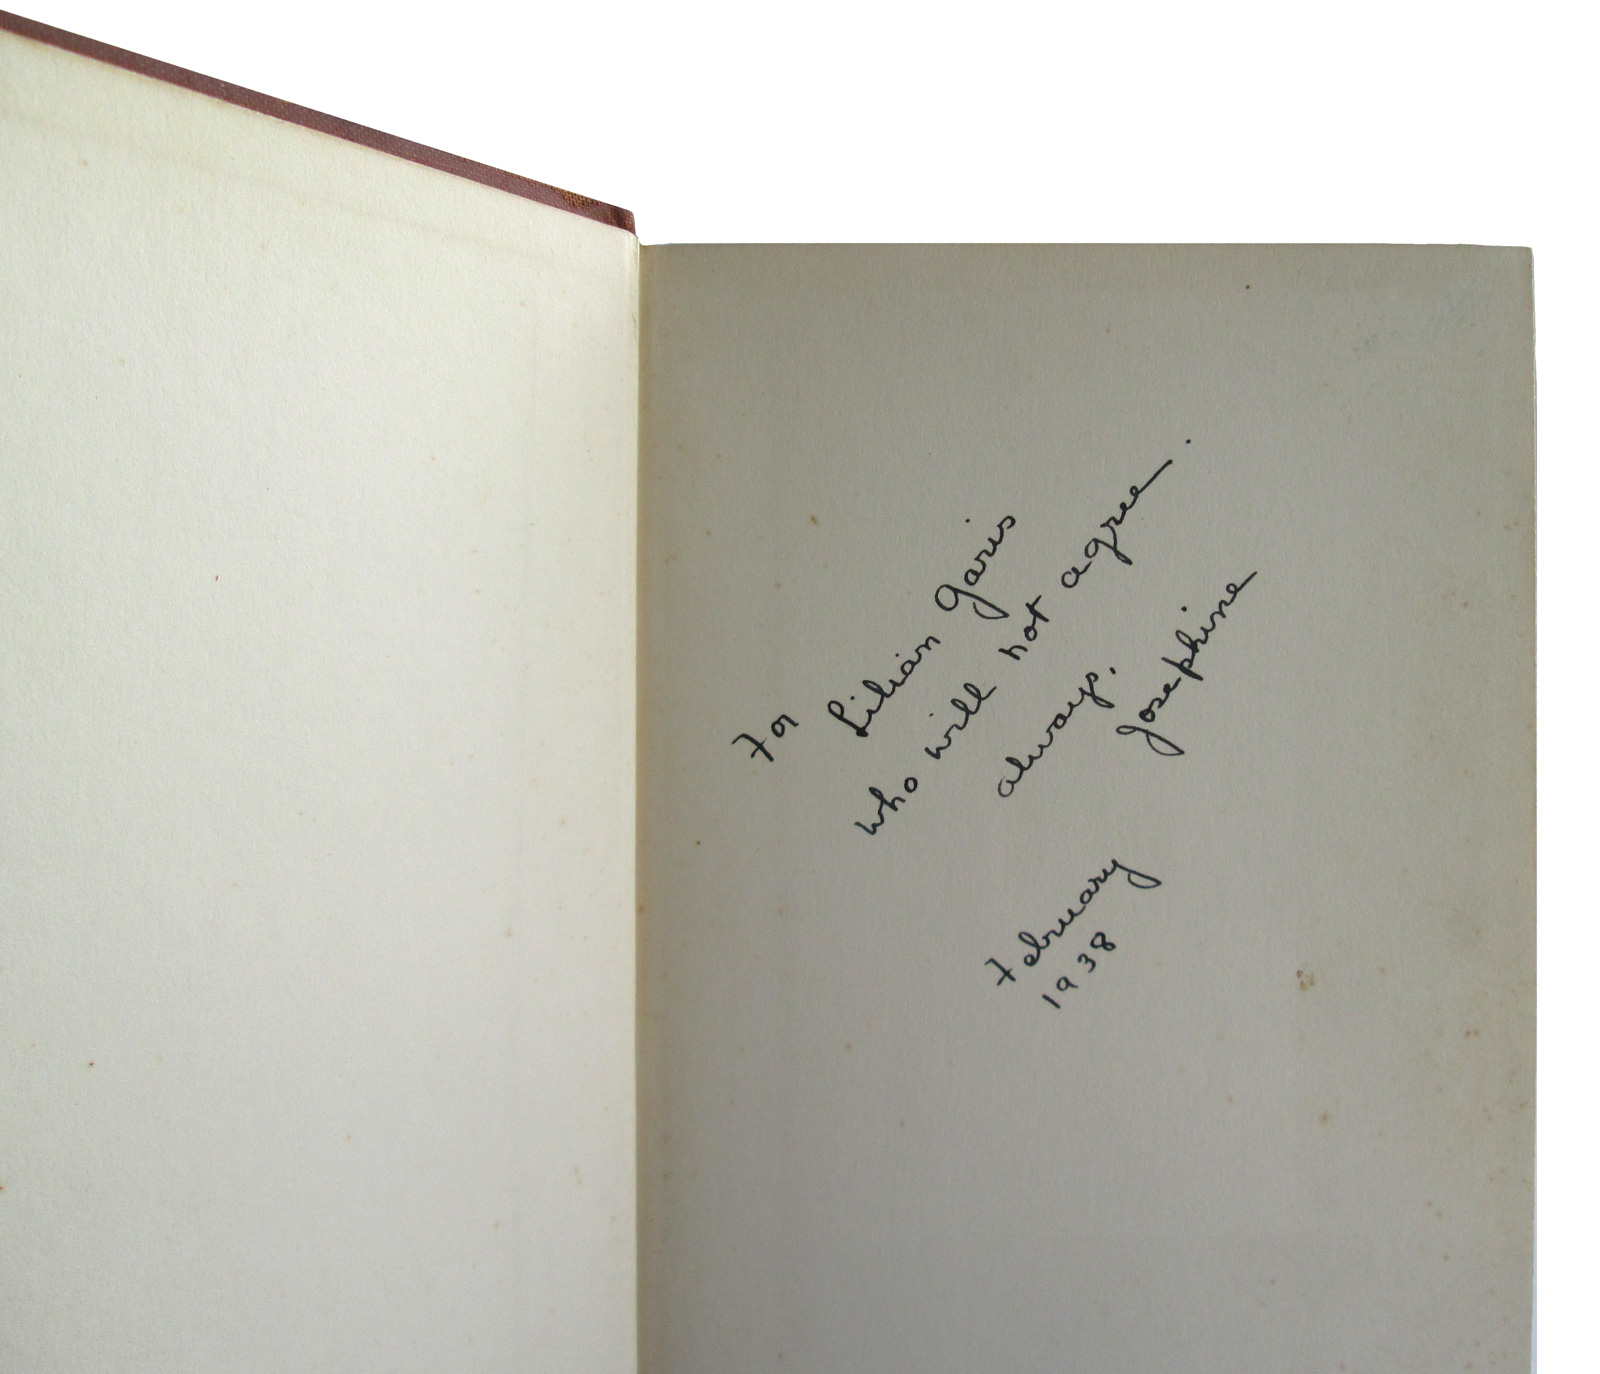 For Lilian Garis
who will not agree.
always.
Josephine
February
1938